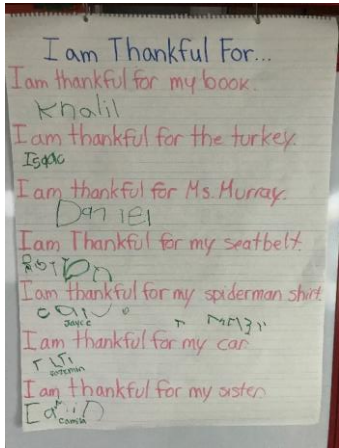 I am Thankful For...
I am thankful for my book.
Khalil
I am thankful for the turkey.
Isaac
I am thankful for Ms. Murray.
Daniel
I am Thankful for my seatbelt.
I am thankful for my spiderman shirt
Jayce
I am thankful for my car
I am thankful for my sister
Camila